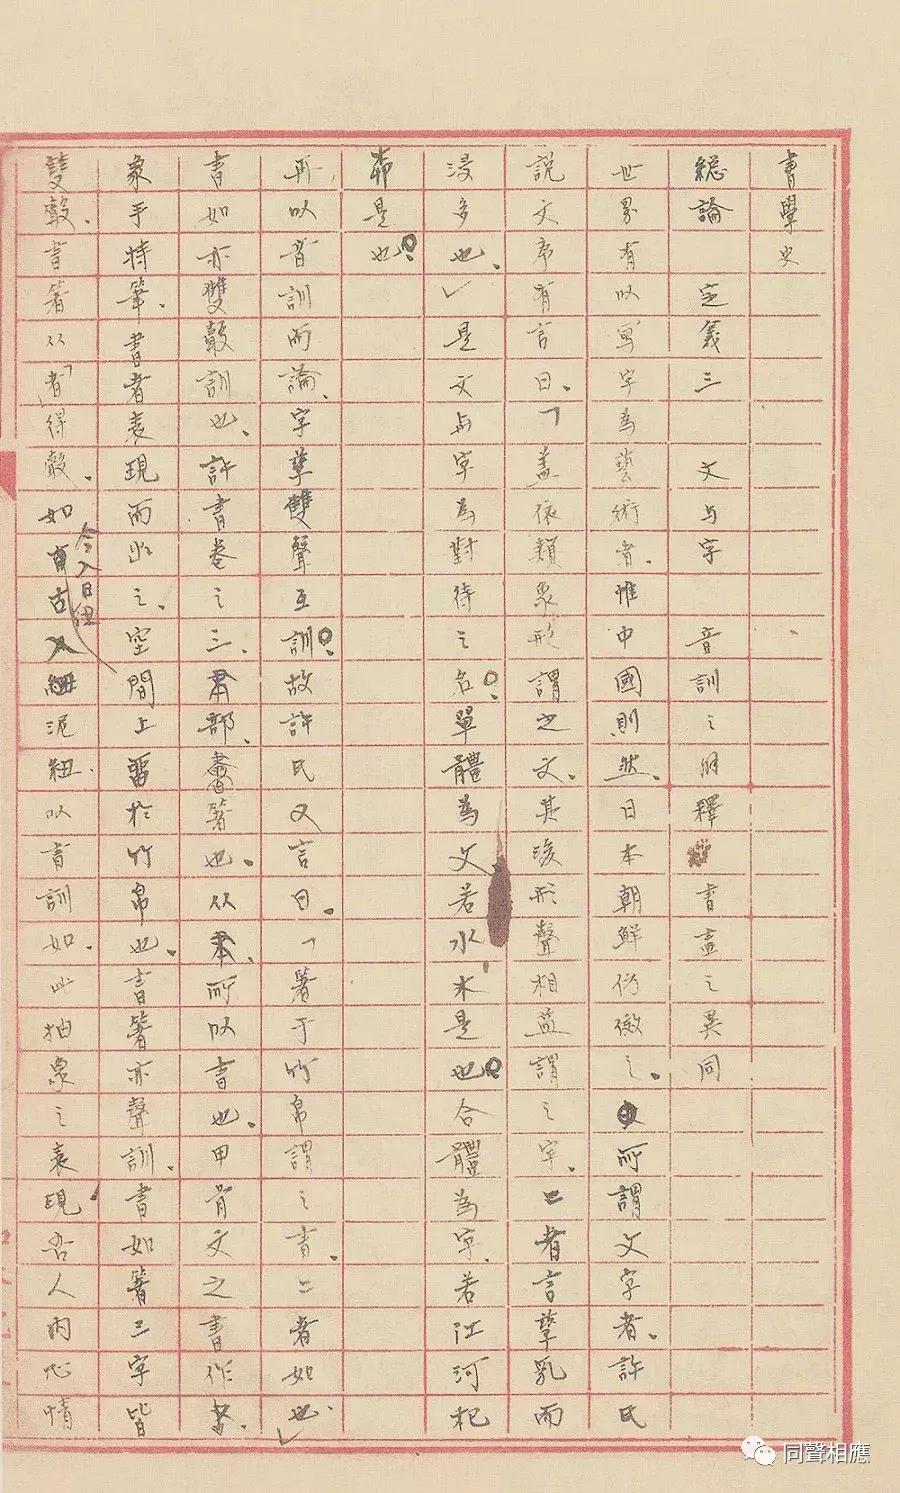 書學史
總論 定義三 文与字 音訓之解釋 書畫之異同
世界有以写字為藝術者、惟中國則然、日本朝鮮仿傚之、所謂文字者、許氏
説文序有言曰、「蓋依類象形謂之文、其後形聲相益謂之字、字者言孳乳而
浸多也、是文与字為對待之名。單體為文若水木是也。合體為字、若江河杞
是也。
再以音訓而論、字孳雙聲互訓。故許氏又言曰、「著于竹帛謂之書、書者如也、
書如亦雙聲訓也、許書卷之三、聿部、書箸也、从聿、所以書也、甲骨文之書作
象手持筆、書者表現而出之、空間上畱於竹帛也、書箸亦聲訓、書如箸三字皆
雙聲、書箸从「者」得聲、如古 泥紐、以音訓如、此抽象之表現吾人内心情
今入日紐
同聲相應